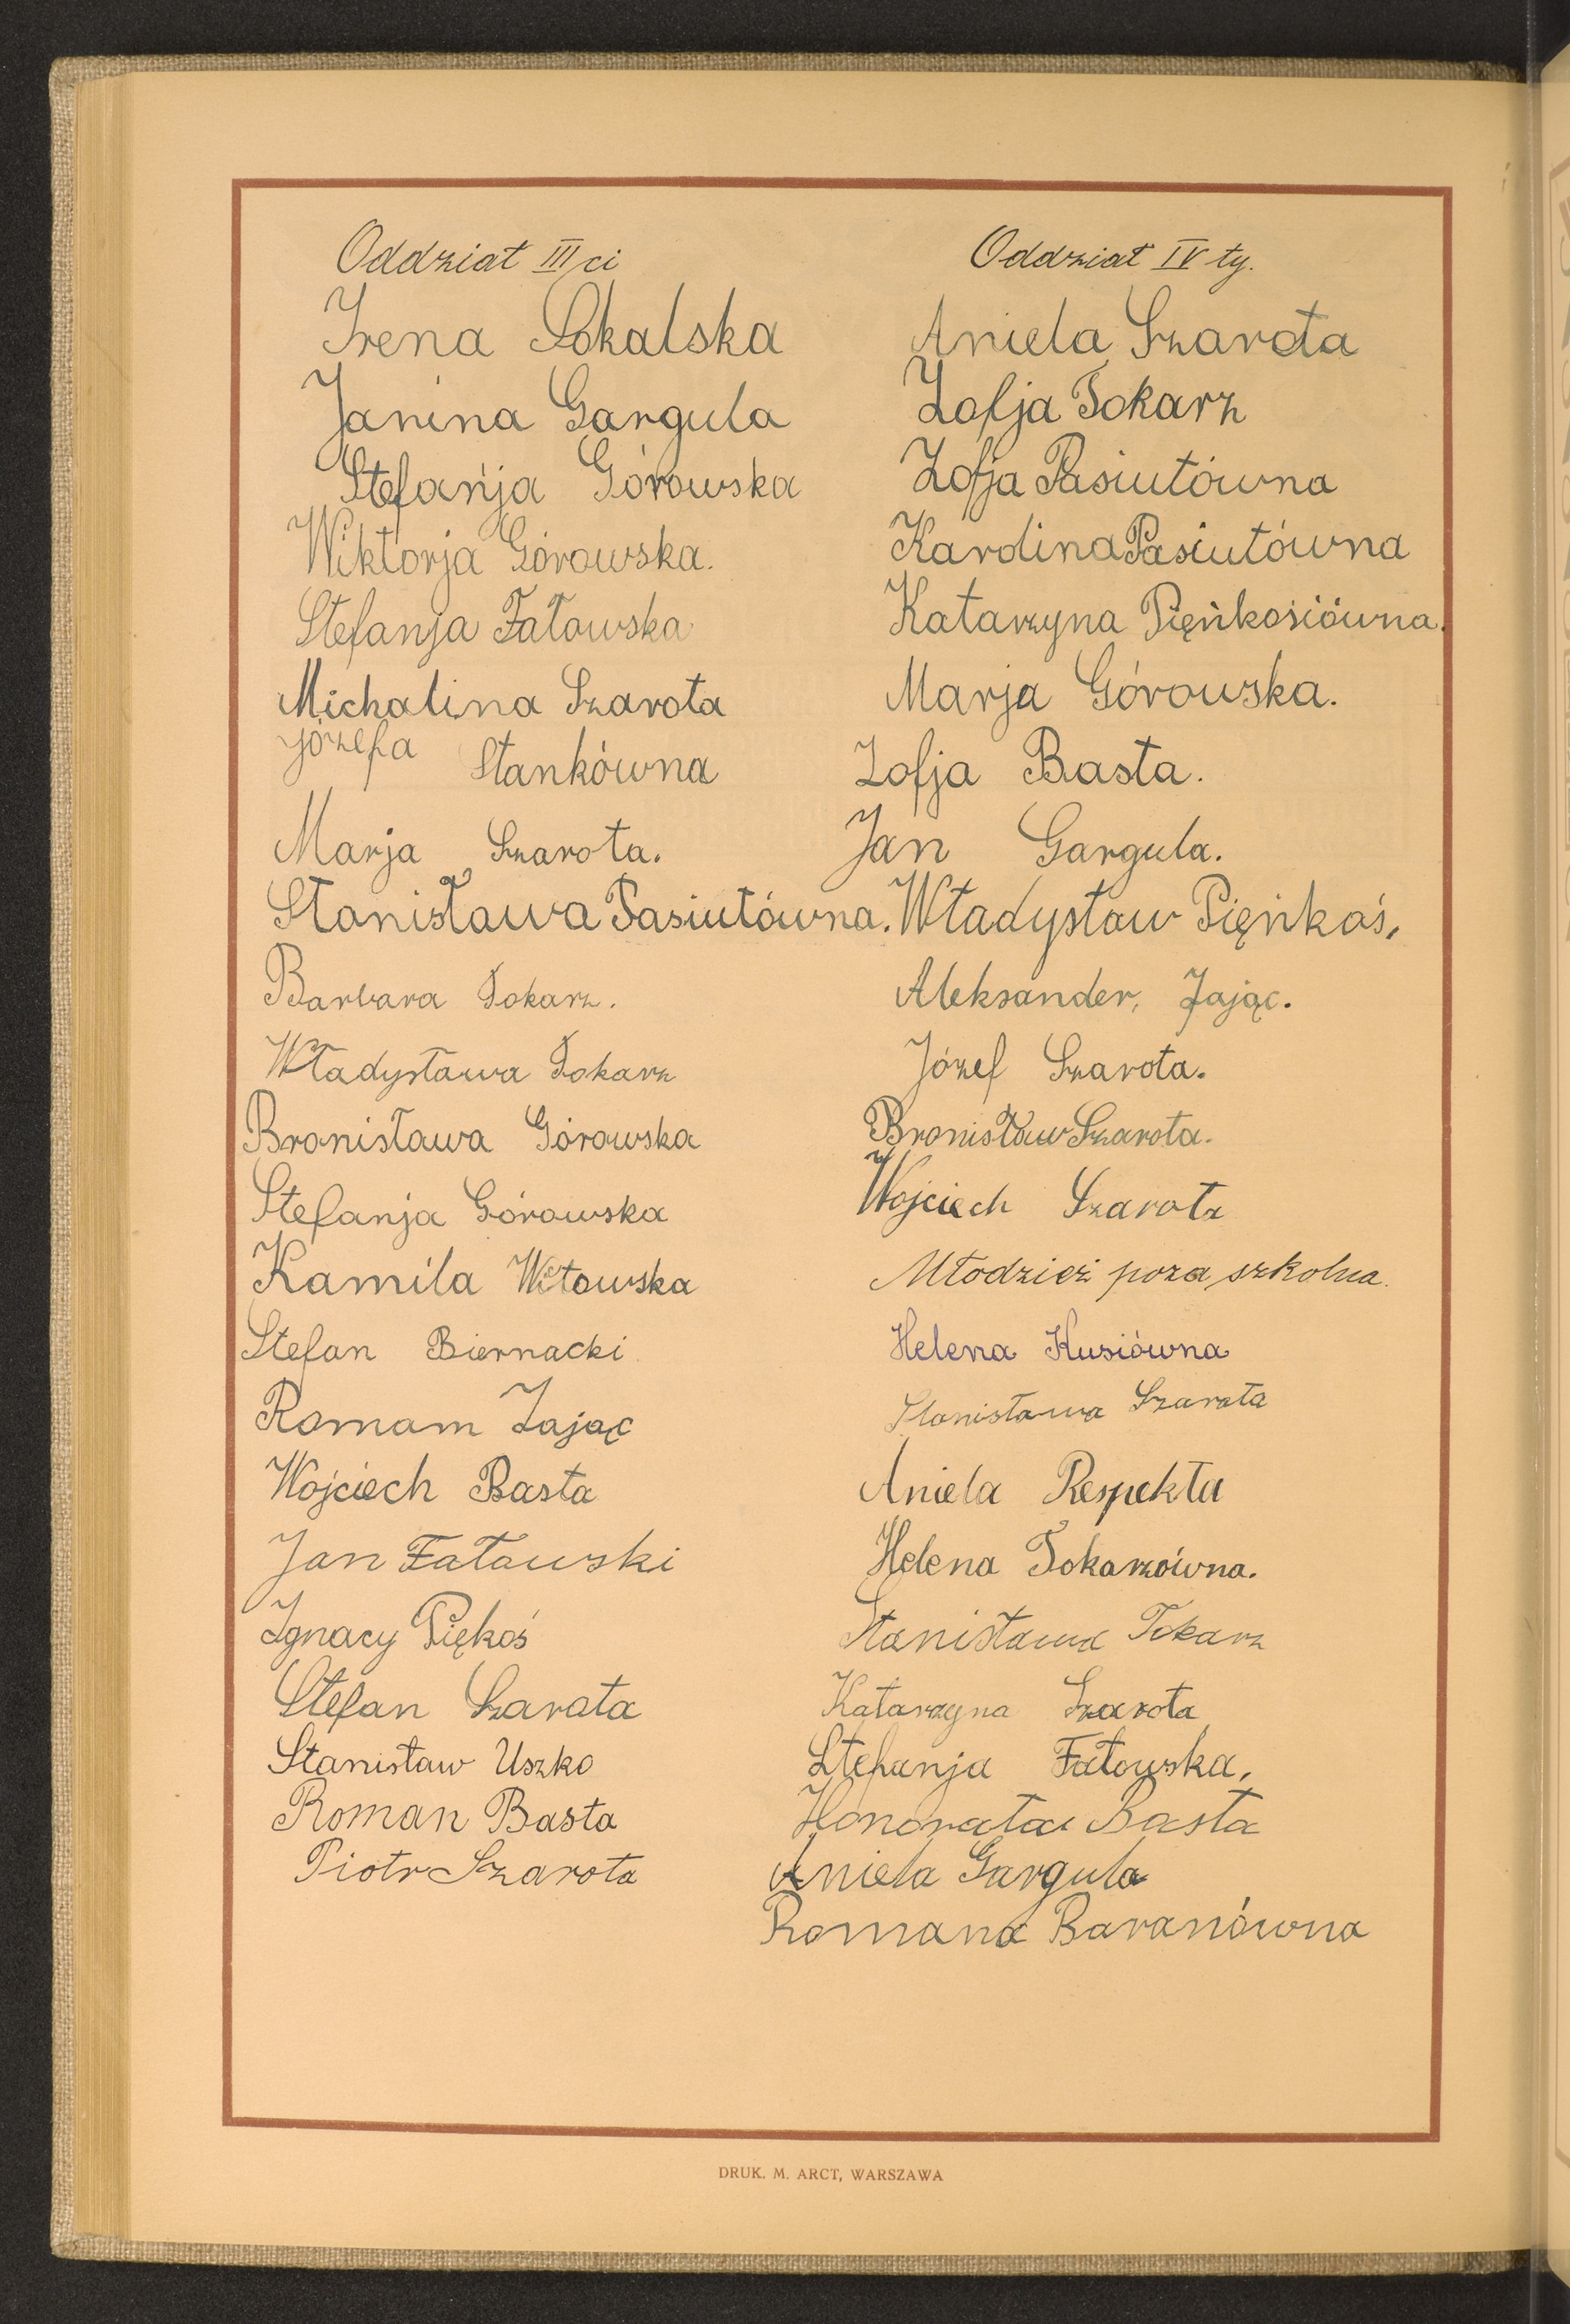 Oddział III ci
Irena Sokalska
Janina Gargula
Stefanja Górowska
Wiktorja Górowska.
Stefanja Fałowska
Michalina Szarota
Józefa Stankówna
Marja Szarota.
Stanisława Pasiutówna.
Barbara Tokarz.
Władysława Tokarz
Bronisława Górowska
Stefanja Górowska
Kamila Witowska
Stefan Biernacki
Romam Zając
Wojciech Basta
Jan Fałowski
Ignacy Piękoś
Stefan Szarota
Stanisław Uszko
Roman Basta
Piotr Szarota
Oddział IV ty.
Aniela Szarota
Zofja Tokarz
Zofja Pasiutówna
Karolina Pasiutówna
Katarzyna Pięńkosiówna.
Marja Górowska.
Zofja Basta.
Jan Gargula.
Władysław Pięńkoś,
Aleksander, Zając.
Józef Szarota.
Bronisław Szarota.
Wojciech Szarota
Młodzież poza szkolna.
Helena Kusiówna
Stanisława Szarota
Aniela Respekta
Helena Tokarzówna.
Stanisława Tokarz
Katarzyna Szarota
Stefanja Fałowska,
Honorata Basta
Aniela Gargula
Romana Baranówna
DRUK. M. ARCT, WARSZAWA